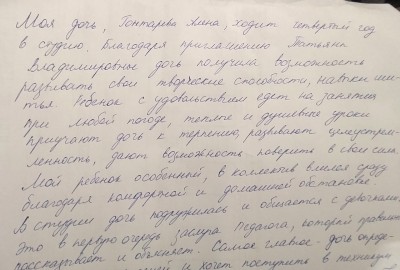 Моя дочь, Гонтарева Алина, ходит четвертый год
в студию. Благодаря приглашению Татьяны
Владимировны дочь получила возможность
развивать свои творческие способности, навыки шит-
тья. Ребенок с удовольствием едет на занятия
при любой погоде, теплые и душевные уроки
приучают дочь к терпению, развивают целеустрем-
ленность, дают возможность поверить в свои силы.
Мой ребенок особенный, в коллектив влился сразу
благодаря комфортной и домашней обстановке.
В студии дочь подружилась и общается с девочками.
Это в первую очередь заслуга педагога, который правильно
рассказывает и объясняет. Самое главное - дочь опреде-
и хочет поступить в техникум